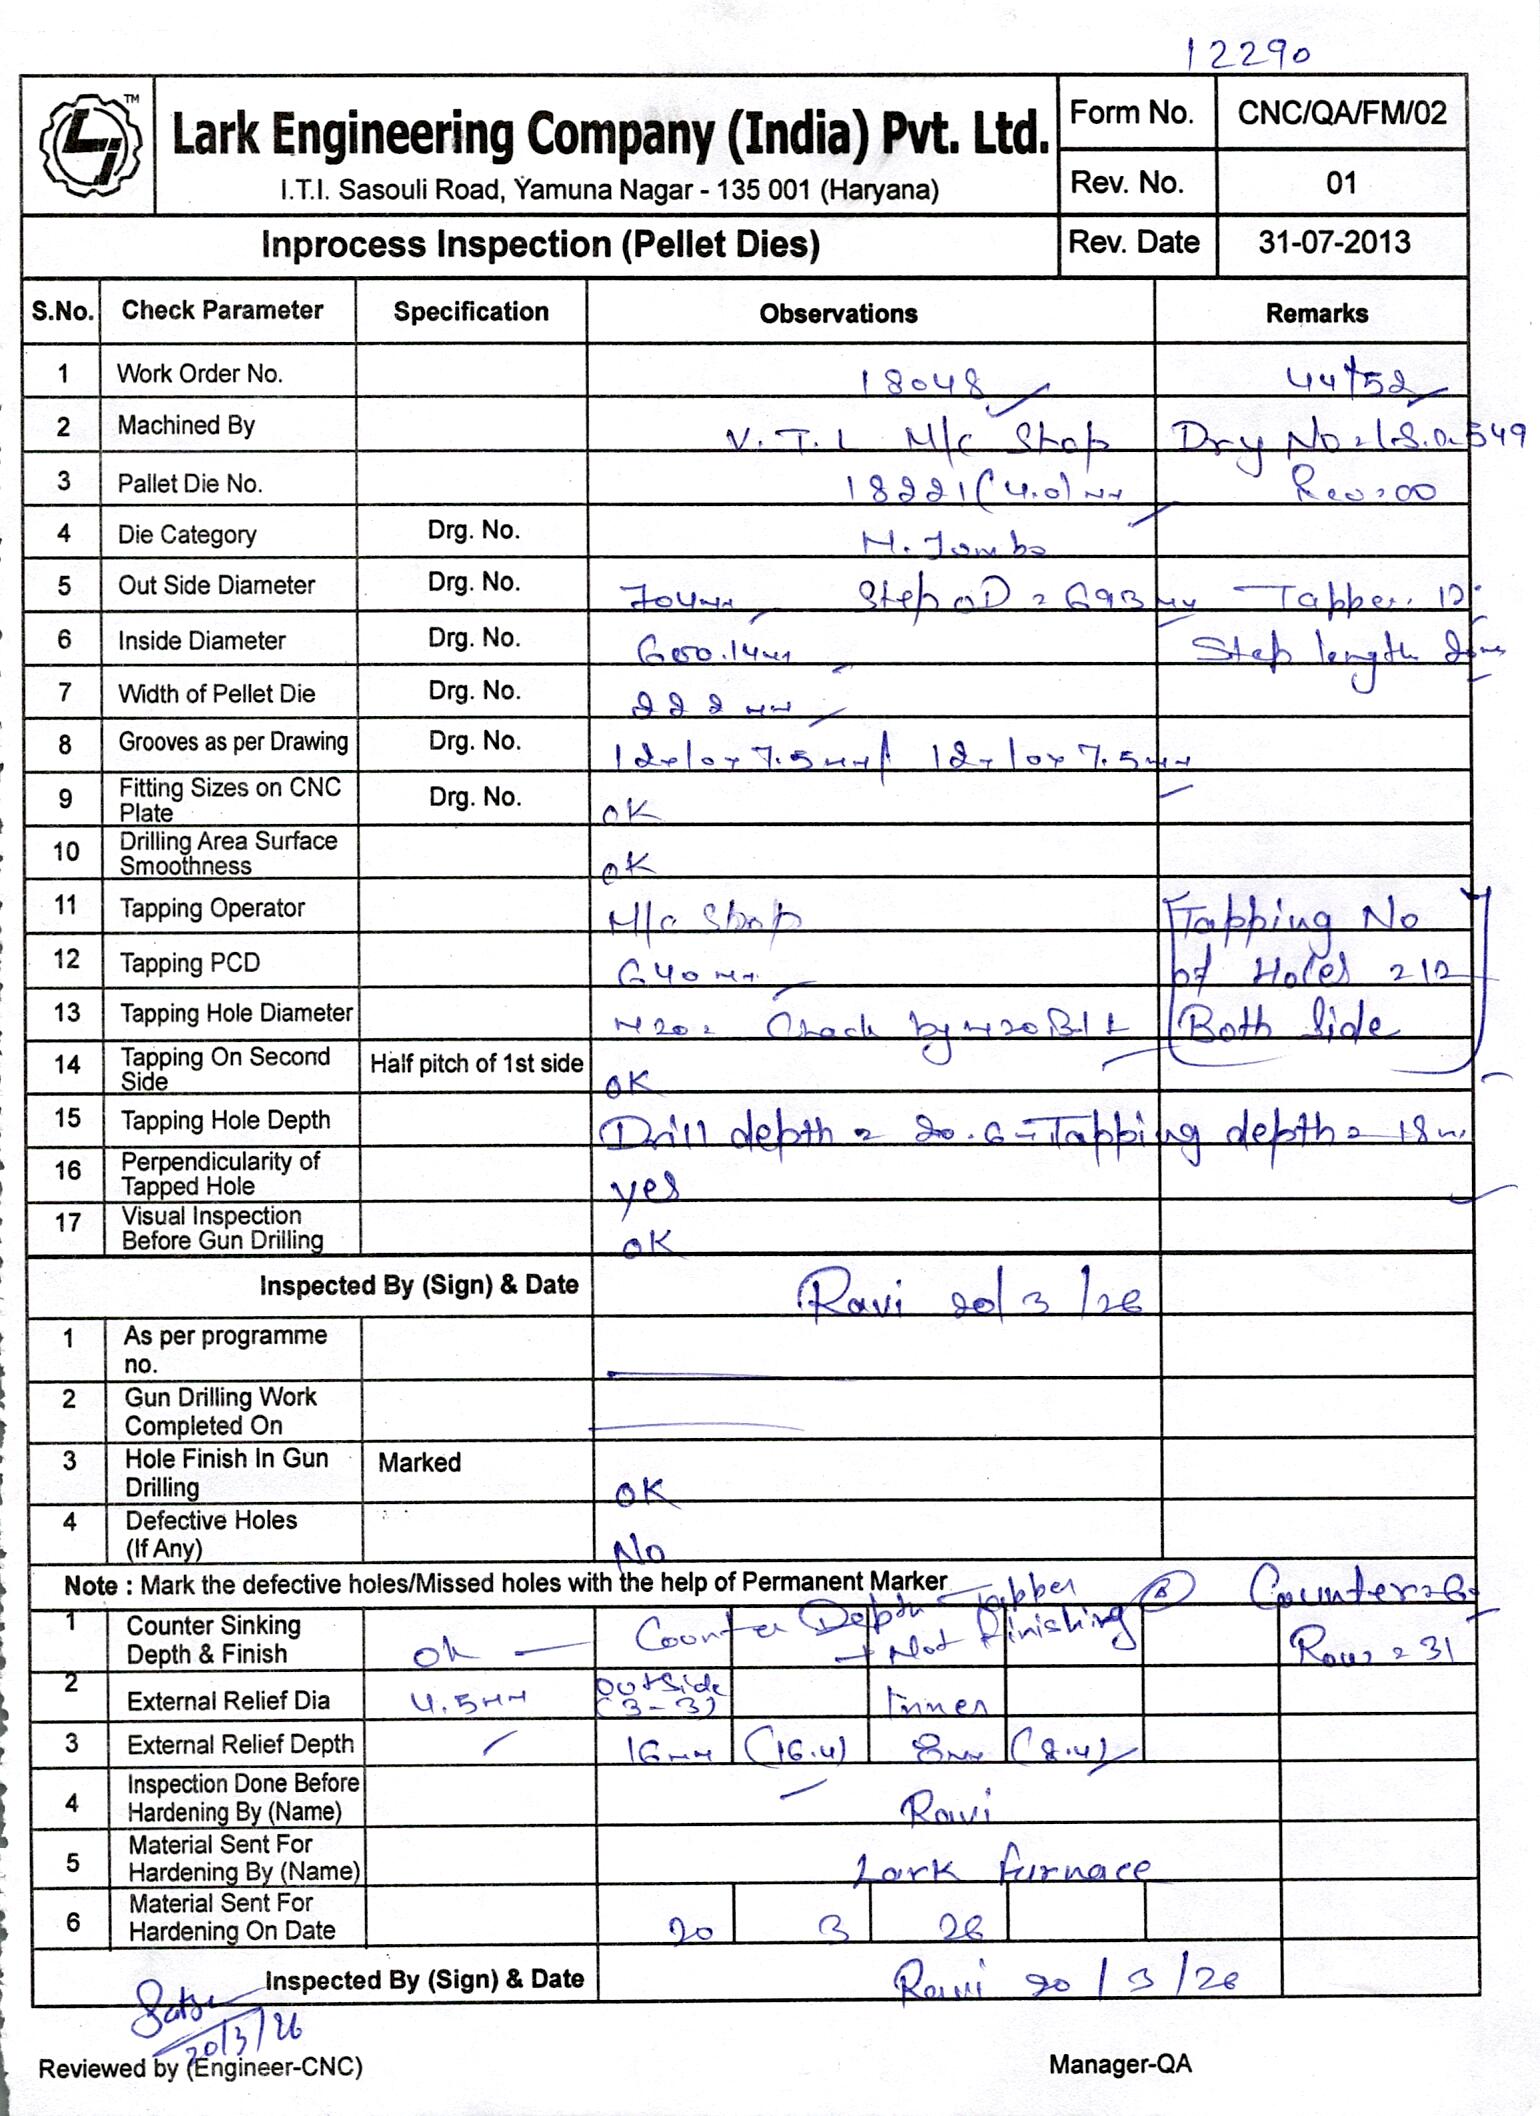 12290
Lark Engineering Company (India) Pvt. Ltd.
I.T.I. Sasouli Road, Yamuna Nagar - 135 001 (Haryana)
Form No. CNC/QA/FM/02
Rev. No. 01
Inprocess Inspection (Pellet Dies) Rev. Date 31-07-2013
S.No. Check Parameter Specification Observations Remarks
1 Work Order No. 18048
2 Machined By V.T.L M/c Shop
3 Pallet Die No. 18221 (4.0) mm Rev=00
4 Die Category Drg. No. M. Jumbo
5 Out Side Diameter Drg. No. 704mm Step OD = 693mm Tapper
6 Inside Diameter Drg. No. 600.14mm Step length
7 Width of Pellet Die Drg. No. 222 mm
8 Grooves as per Drawing Drg. No. 12x10x7.5mm / 12x10x7.5mm
9 Fitting Sizes on CNC Plate Drg. No. OK
10 Drilling Area Surface Smoothness OK
11 Tapping Operator M/c Shop Tapping No
12 Tapping PCD 640 mm of Holes = 12
13 Tapping Hole Diameter M20 = Check by M20 Both Side
14 Tapping On Second Side Half pitch of 1st side OK
15 Tapping Hole Depth Drill depth = 20.6 - Tapping depth = 18
16 Perpendicularity of Tapped Hole yes
17 Visual Inspection Before Gun Drilling OK
Inspected By (Sign) & Date Ravi 20/3/26
1 As per programme no.
2 Gun Drilling Work Completed On
3 Hole Finish In Gun Drilling Marked OK
4 Defective Holes (If Any) No
Note : Mark the defective holes/Missed holes with the help of Permanent Marker
1 Counter Sinking Depth & Finish Ok Counter Depth Tapper Not Finishing Row = 31
2 External Relief Dia 4.5mm Outside (3-3) Inner
3 External Relief Depth 16mm (16.4) 8mm (8.4)
4 Inspection Done Before Hardening By (Name) Ravi
5 Material Sent For Hardening By (Name) Lark furnace
6 Material Sent For Hardening On Date 20 3 26
Inspected By (Sign) & Date Ravi 20/3/26
20/3/26
Reviewed by (Engineer-CNC) Manager-QA